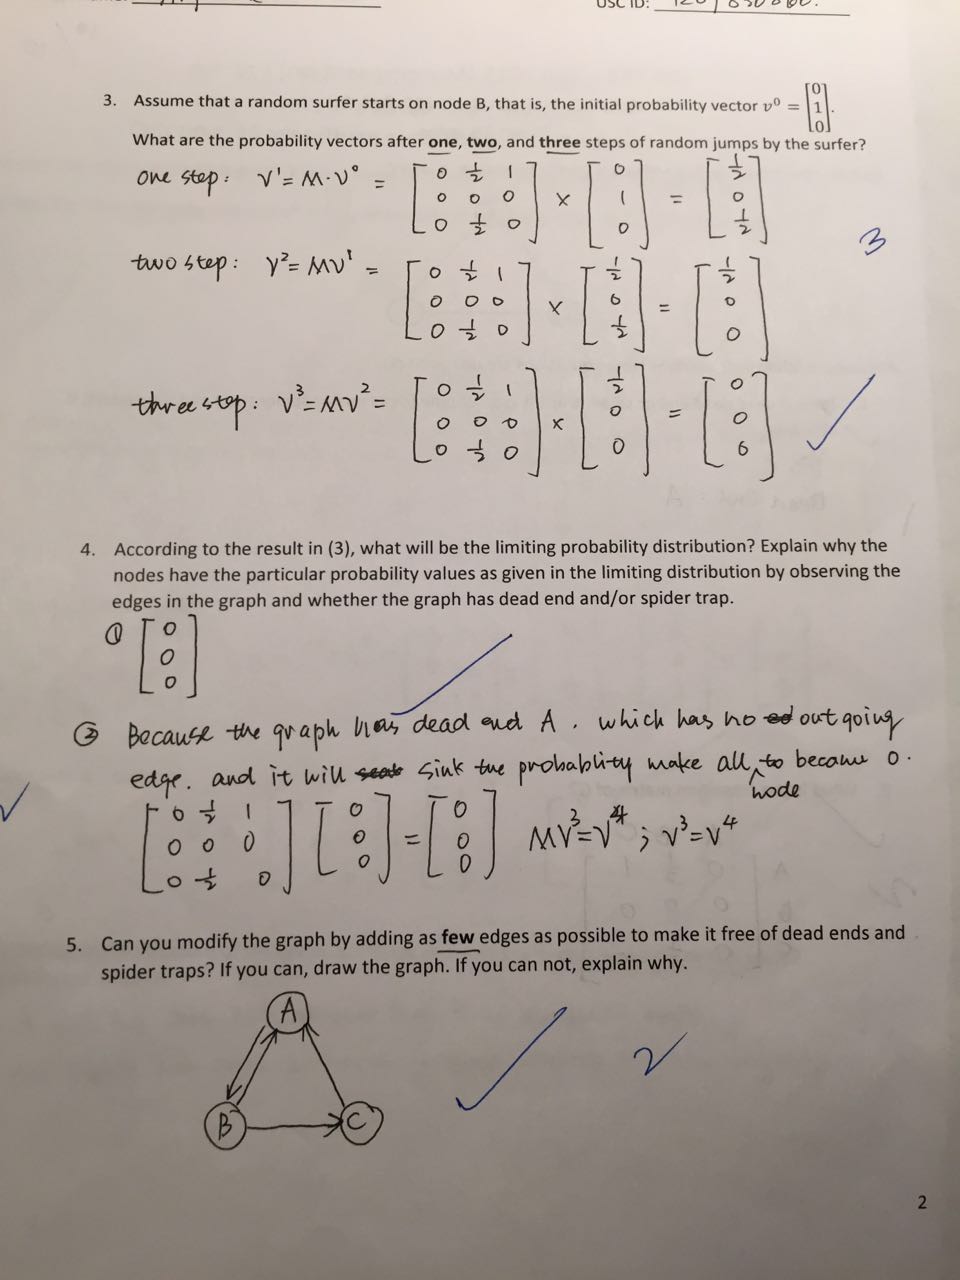 USC ID:
3. Assume that a random surfer starts on node B, that is, the initial probability vector v⁰ = [0 1 0].
What are the probability vectors after one, two, and three steps of random jumps by the surfer?
one step: V¹ = M·V⁰ = [0 ½ 1; 0 0 0; 0 ½ 0] × [0; 1; 0] = [½; 0; ½]
3
two step: V² = MV¹ = [0 ½ 1; 0 0 0; 0 ½ 0] × [½; 0; ½] = [½; 0; 0]
three step: V³ = MV² = [0 ½ 1; 0 0 0; 0 ½ 0] × [½; 0; 0] = [0; 0; 0]
4. According to the result in (3), what will be the limiting probability distribution? Explain why the
nodes have the particular probability values as given in the limiting distribution by observing the
edges in the graph and whether the graph has dead end and/or spider trap.
① [0; 0; 0]
② Because the graph has dead end A. which has no out going
edge. and it will sink the probability make all node to became 0.
[0 ½ 1; 0 0 0; 0 ½ 0] [0; 0; 0] = [0; 0; 0] MV³=V⁴ ; V³=V⁴
5. Can you modify the graph by adding as few edges as possible to make it free of dead ends and
spider traps? If you can, draw the graph. If you can not, explain why.
A
B C
2
2